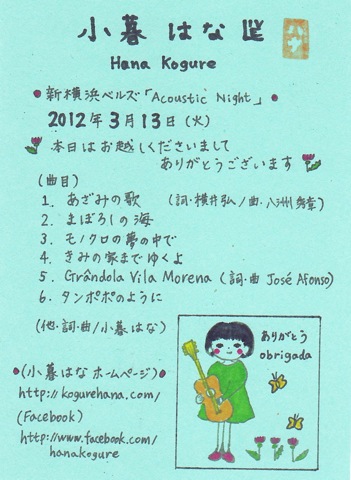 小暮はな
Hana Kogure
ハナ
●新横浜ベルズ「Acoustic Night」●
2012年3月13日(火)
本日はお越しくださいまして
ありがとうございます
(曲目)
1. あざみの歌 (詞・横井弘/曲・八洲秀章)
2. まぼろしの海
3. モノクロの夢の中で
4. きみの家までゆくよ
5. Grândola Vila Morena (詞・曲 José Afonso)
6. タンポポのように
(他・詞・曲/小暮はな)
●(小暮はな ホームページ)●
http://kogurehana.com/
(Facebook)
http://www.facebook.com/
hanakogure
ありがとう
obrigada